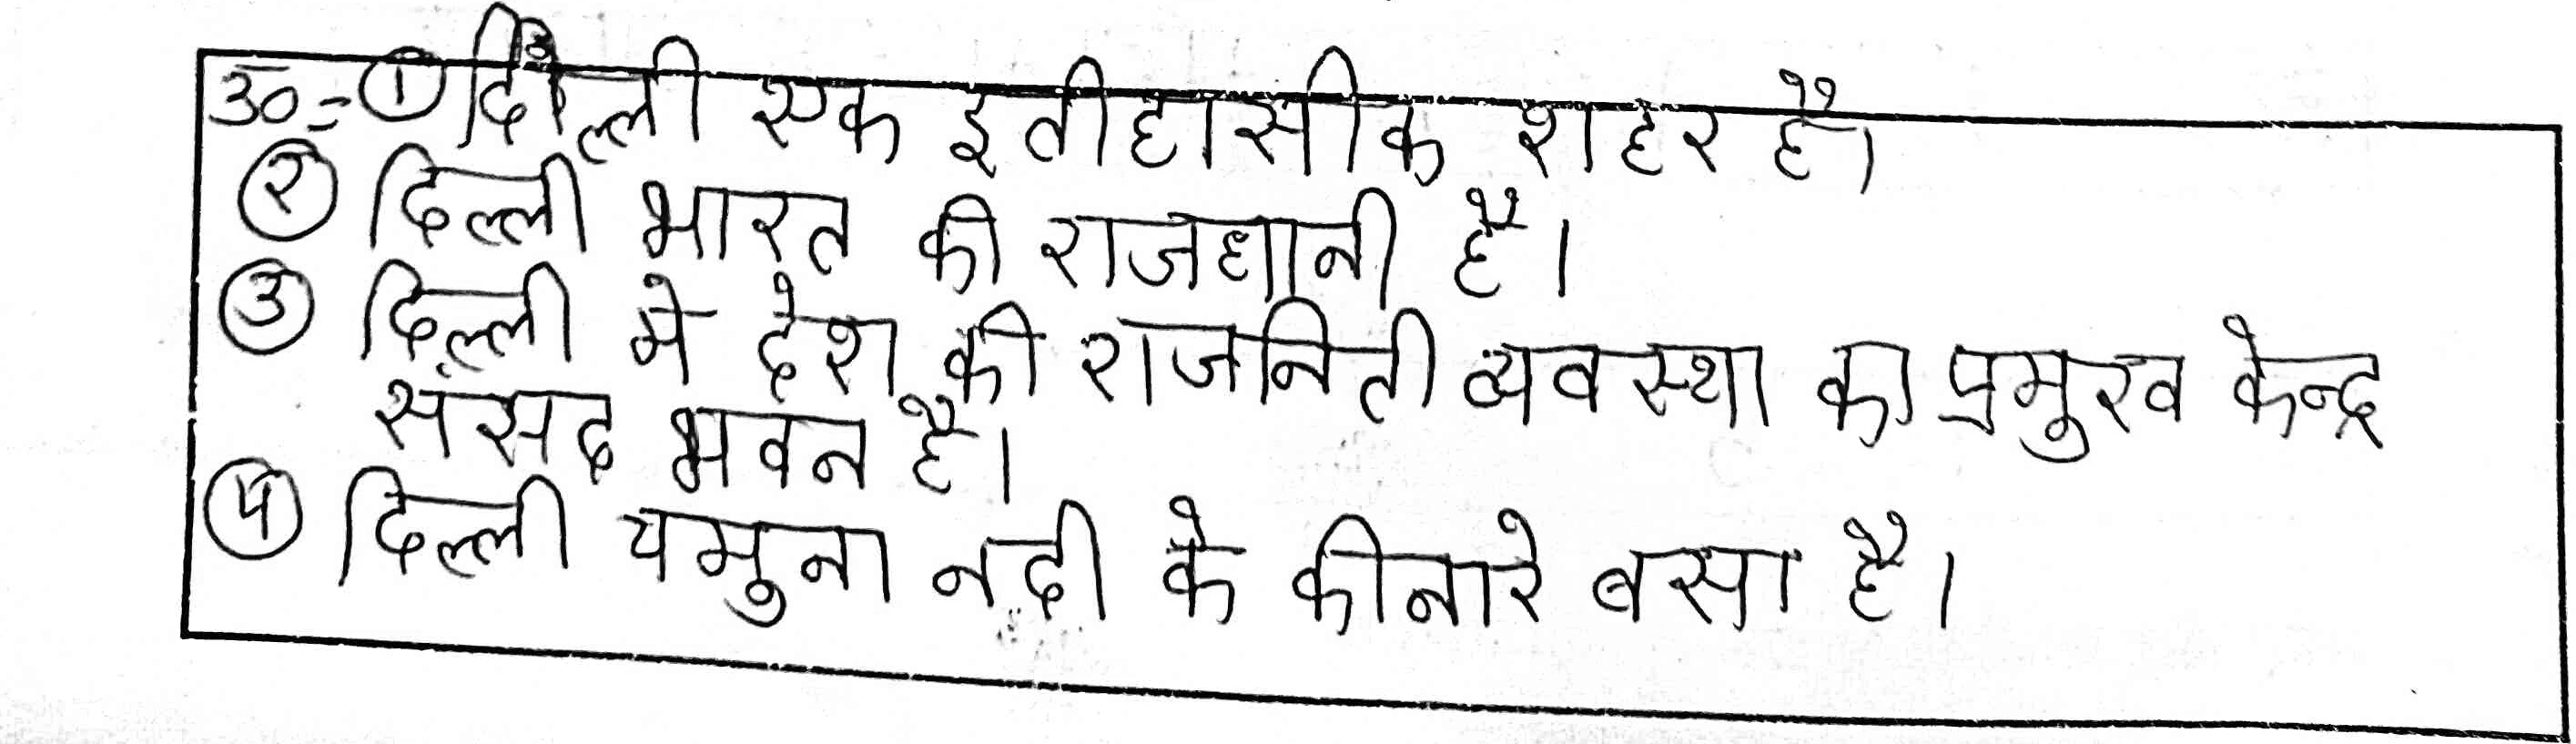 उ०=① दिल्ली एक इतीहासीक शहर है।
② दिल्ली भारत की राजधानी है।
③ दिल्ली मे देश की राजनिती व्यवस्था का प्रमुख केन्द्र
संसद भवन है।
④ दिल्ली यमुना नदी के कीनारे बसा है।